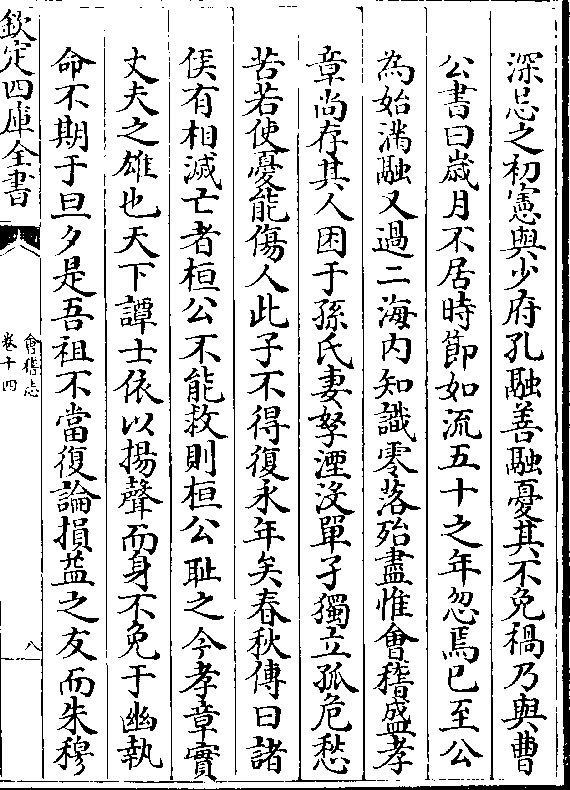 深忌之初憲與少府孔融善融憂其不免禍乃與曹
公書曰歲月不居時節如流五十之年忽焉已至公
為始滿融又過二海內知識零落殆盡惟會稽盛孝
章尚存其人困于孫氏妻孥湮沒單孑獨立孤危愁
苦若使憂能傷人此子不得復永年矣春秋傳曰諸
侯有相滅亡者桓公不能救則桓公恥之今孝章實
丈夫之雄也天下譚士依以揚聲而身不免于幽執
命不期于旦夕是吾祖不當復論損益之友而朱穆
欽定四庫全書
會稽志
卷十四
八